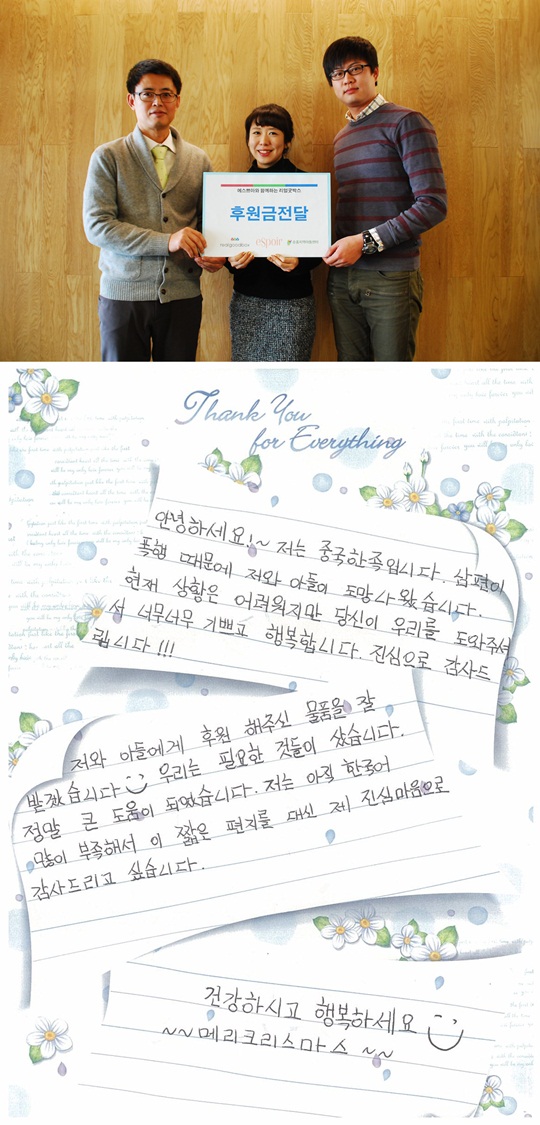 에스쁘아와 함께하는 리얼굿박스
후원금전달
espoir
Thank You
for Everything
안녕하세요!~ 저는 중국한족입니다. 남편이
폭행 때문에 저와 아들이 도망나왔습니다.
현재 상황은 어려워지만 당신이 우리를 도와주셔
서 너무너무 기쁘고 행복합니다. 진심으로 감사드
립니다!!!
저와 아들에게 후원 해주신 물품을 잘
받겠습니다 우리는 필요한 것들이 샀습니다.
정말 큰 도움이 되었습니다. 저는 아직 한국어
많이 부족해서 이 짧은 편지를 대신 제 진심마음으로
감사드리고 싶습니다.
건강하시고 행복하세요
~~메리크리스마스~~